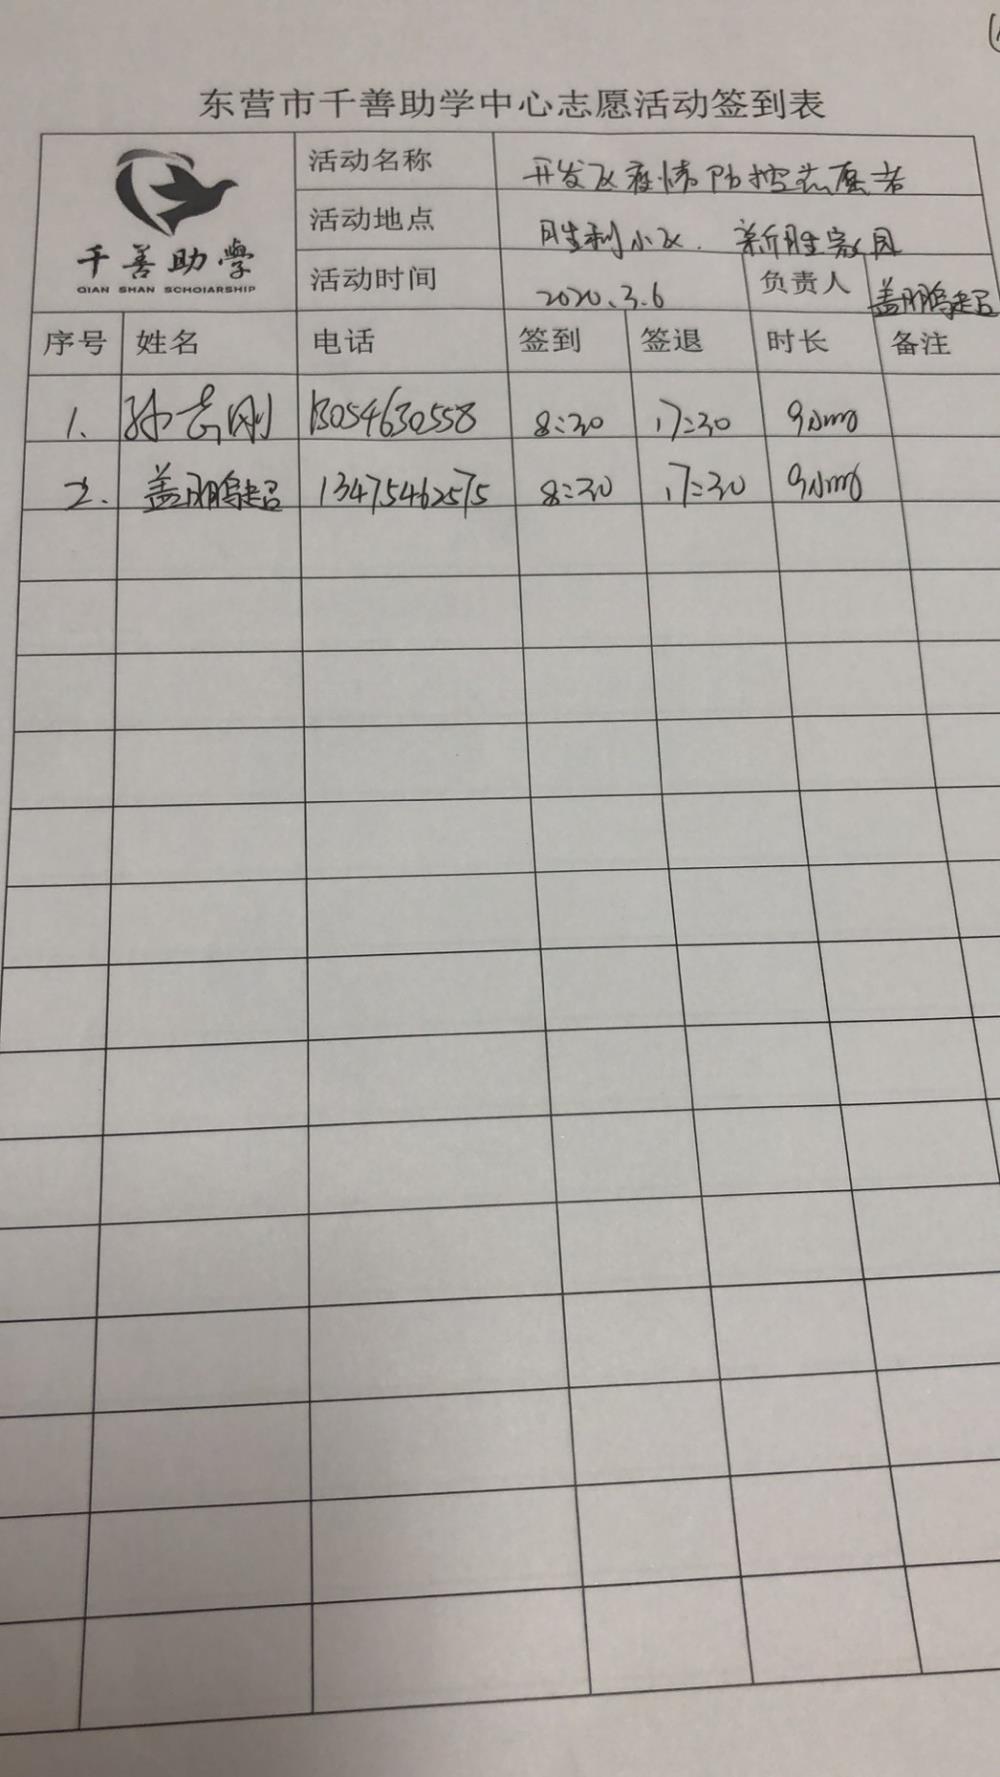 东营市千善助学中心志愿活动签到表
千善助學
QIAN SHAN SCHOIARSHIP
活动名称 开发区疫情防控志愿者
活动地点 胜利小区、新胜家园
活动时间 2020.3.6 负责人 盖鹏超
序号 姓名 电话 签到 签退 时长 备注
1. 孙志刚 13054630558 8:30 17:30 9小时
2. 盖鹏超 13475462575 8:30 17:30 9小时